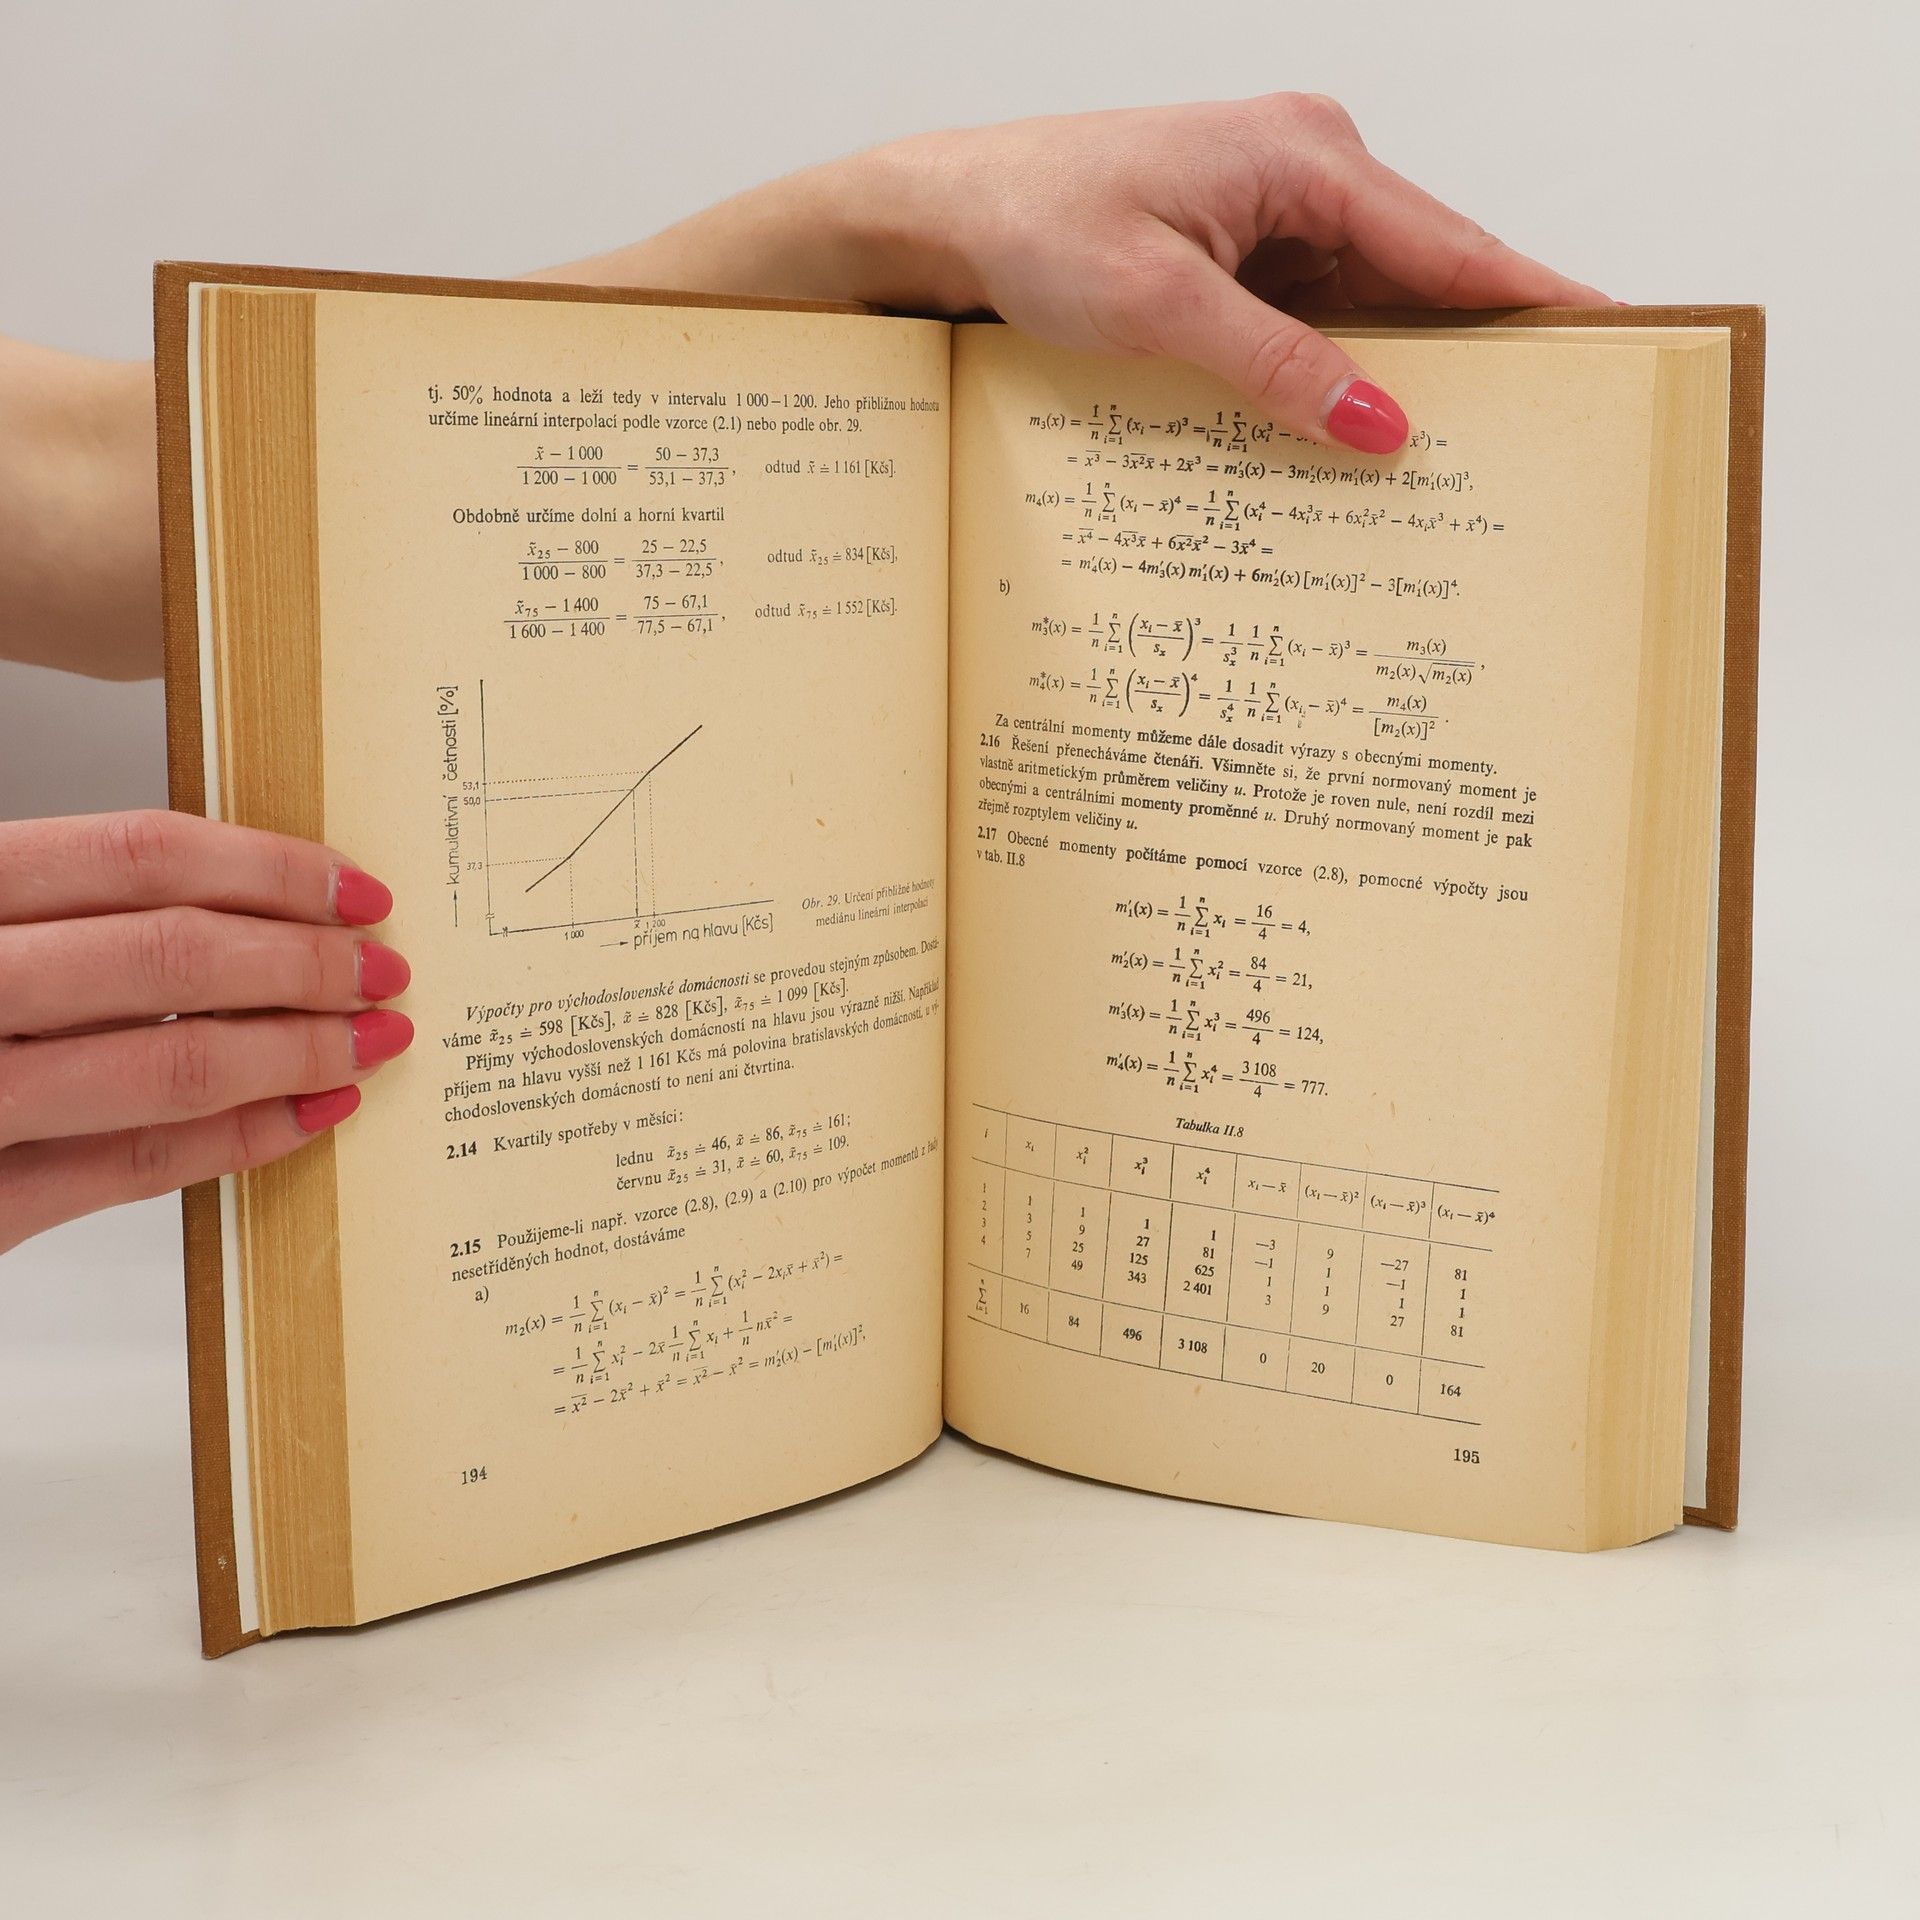 tj. 50% hodnota a leží tedy v intervalu 1 000–1 200. Jeho přibližnou hodnotu
určíme lineární interpolací podle vzorce (2.1) nebo podle obr. 29.
(x̃ – 1 000)/(1 200 – 1 000) = (50 – 37,3)/(53,1 – 37,3), odtud x̃ ≐ 1 161 [Kčs].
Obdobně určíme dolní a horní kvartil
(x̃₂₅ – 800)/(1 000 – 800) = (25 – 22,5)/(37,3 – 22,5), odtud x̃₂₅ ≐ 834 [Kčs],
(x̃₇₅ – 1 400)/(1 600 – 1 400) = (75 – 67,1)/(77,5 – 67,1), odtud x̃₇₅ ≐ 1 552 [Kčs].
→ kumulativní četnosti [%]
53,1
50,0
37,3
1 000 x̃ 1 200
→ příjem na hlavu [Kčs]
Obr. 29. Určení přibližné hodnoty
mediánu lineární interpolací
Výpočty pro východoslovenské domácnosti se provedou stejným způsobem. Dostá-
váme x̃₂₅ ≐ 598 [Kčs], x̃ ≐ 828 [Kčs], x̃₇₅ ≐ 1 099 [Kčs].
Příjmy východoslovenských domácností na hlavu jsou výrazně nižší. Například
příjem na hlavu vyšší než 1 161 Kčs má polovina bratislavských domácností, u vý-
chodoslovenských domácností to není ani čtvrtina.
2.14 Kvartily spotřeby v měsíci:
lednu x̃₂₅ ≐ 46, x̃ ≐ 86, x̃₇₅ ≐ 161;
červnu x̃₂₅ ≐ 31, x̃ ≐ 60, x̃₇₅ ≐ 109.
2.15 Použijeme-li např. vzorce (2.8), (2.9) a (2.10) pro výpočet momentů z řady
nesetříděných hodnot, dostáváme
a)
m₂(x) = 1/n ∑ⁿᵢ₌₁ (xᵢ – x̄)² = 1/n ∑ⁿᵢ₌₁ (xᵢ² – 2xᵢx̄ + x̄²) =
= 1/n ∑ⁿᵢ₌₁ xᵢ² – 2x̄ 1/n ∑ⁿᵢ₌₁ xᵢ + 1/n nx̄² =
= x̅²̅ – 2x̄² + x̄² = x̅²̅ – x̄² = m′₂(x) – [m′₁(x)]²,
194
m₃(x) = 1/n ∑ⁿᵢ₌₁ (xᵢ – x̄)³ = 1/n ∑ⁿᵢ₌₁ (xᵢ³ – x̄³) =
= x̅³̅ – 3x̅²̅x̄ + 2x̄³ = m′₃(x) – 3m′₂(x) m′₁(x) + 2[m′₁(x)]³,
m₄(x) = 1/n ∑ⁿᵢ₌₁ (xᵢ – x̄)⁴ = 1/n ∑ⁿᵢ₌₁ (xᵢ⁴ – 4xᵢ³x̄ + 6xᵢ²x̄² – 4xᵢx̄³ + x̄⁴) =
= x̅⁴̅ – 4x̅³̅x̄ + 6x̅²̅x̄² – 3x̄⁴ =
= m′₄(x) – 4m′₃(x) m′₁(x) + 6m′₂(x) [m′₁(x)]² – 3[m′₁(x)]⁴.
b)
m₃*(x) = 1/n ∑ⁿᵢ₌₁ ((xᵢ – x̄)/sₓ)³ = 1/sₓ³ 1/n ∑ⁿᵢ₌₁ (xᵢ – x̄)³ = m₃(x)/(m₂(x) √m₂(x)),
m₄*(x) = 1/n ∑ⁿᵢ₌₁ ((xᵢ – x̄)/sₓ)⁴ = 1/sₓ⁴ 1/n ∑ⁿᵢ₌₁ (xᵢ – x̄)⁴ = m₄(x)/[m₂(x)]².
Za centrální momenty můžeme dále dosadit výrazy s obecnými momenty.
2.16 Řešení přenecháváme čtenáři. Všimněte si, že první normovaný moment je
vlastně aritmetickým průměrem veličiny u. Protože je roven nule, není rozdíl mezi
obecnými a centrálními momenty proměnné u. Druhý normovaný moment je pak
zřejmě rozptylem veličiny u.
2.17 Obecné momenty počítáme pomocí vzorce (2.8), pomocné výpočty jsou
v tab. II.8
m′₁(x) = 1/n ∑ⁿᵢ₌₁ xᵢ = 16/4 = 4,
m′₂(x) = 1/n ∑ⁿᵢ₌₁ xᵢ² = 84/4 = 21,
m′₃(x) = 1/n ∑ⁿᵢ₌₁ xᵢ³ = 496/4 = 124,
m′₄(x) = 1/n ∑ⁿᵢ₌₁ xᵢ⁴ = 3 108/4 = 777.
Tabulka II.8
i xᵢ xᵢ² xᵢ³ xᵢ⁴ xᵢ – x̄ (xᵢ – x̄)² (xᵢ – x̄)³ (xᵢ – x̄)⁴
1 1 1 1 1 –3 9 –27 81
2 3 9 27 81 –1 1 –1 1
3 5 25 125 625 1 1 1 1
4 7 49 343 2 401 3 9 27 81
∑ⁿᵢ₌₁ 16 84 496 3 108 0 20 0 164
195